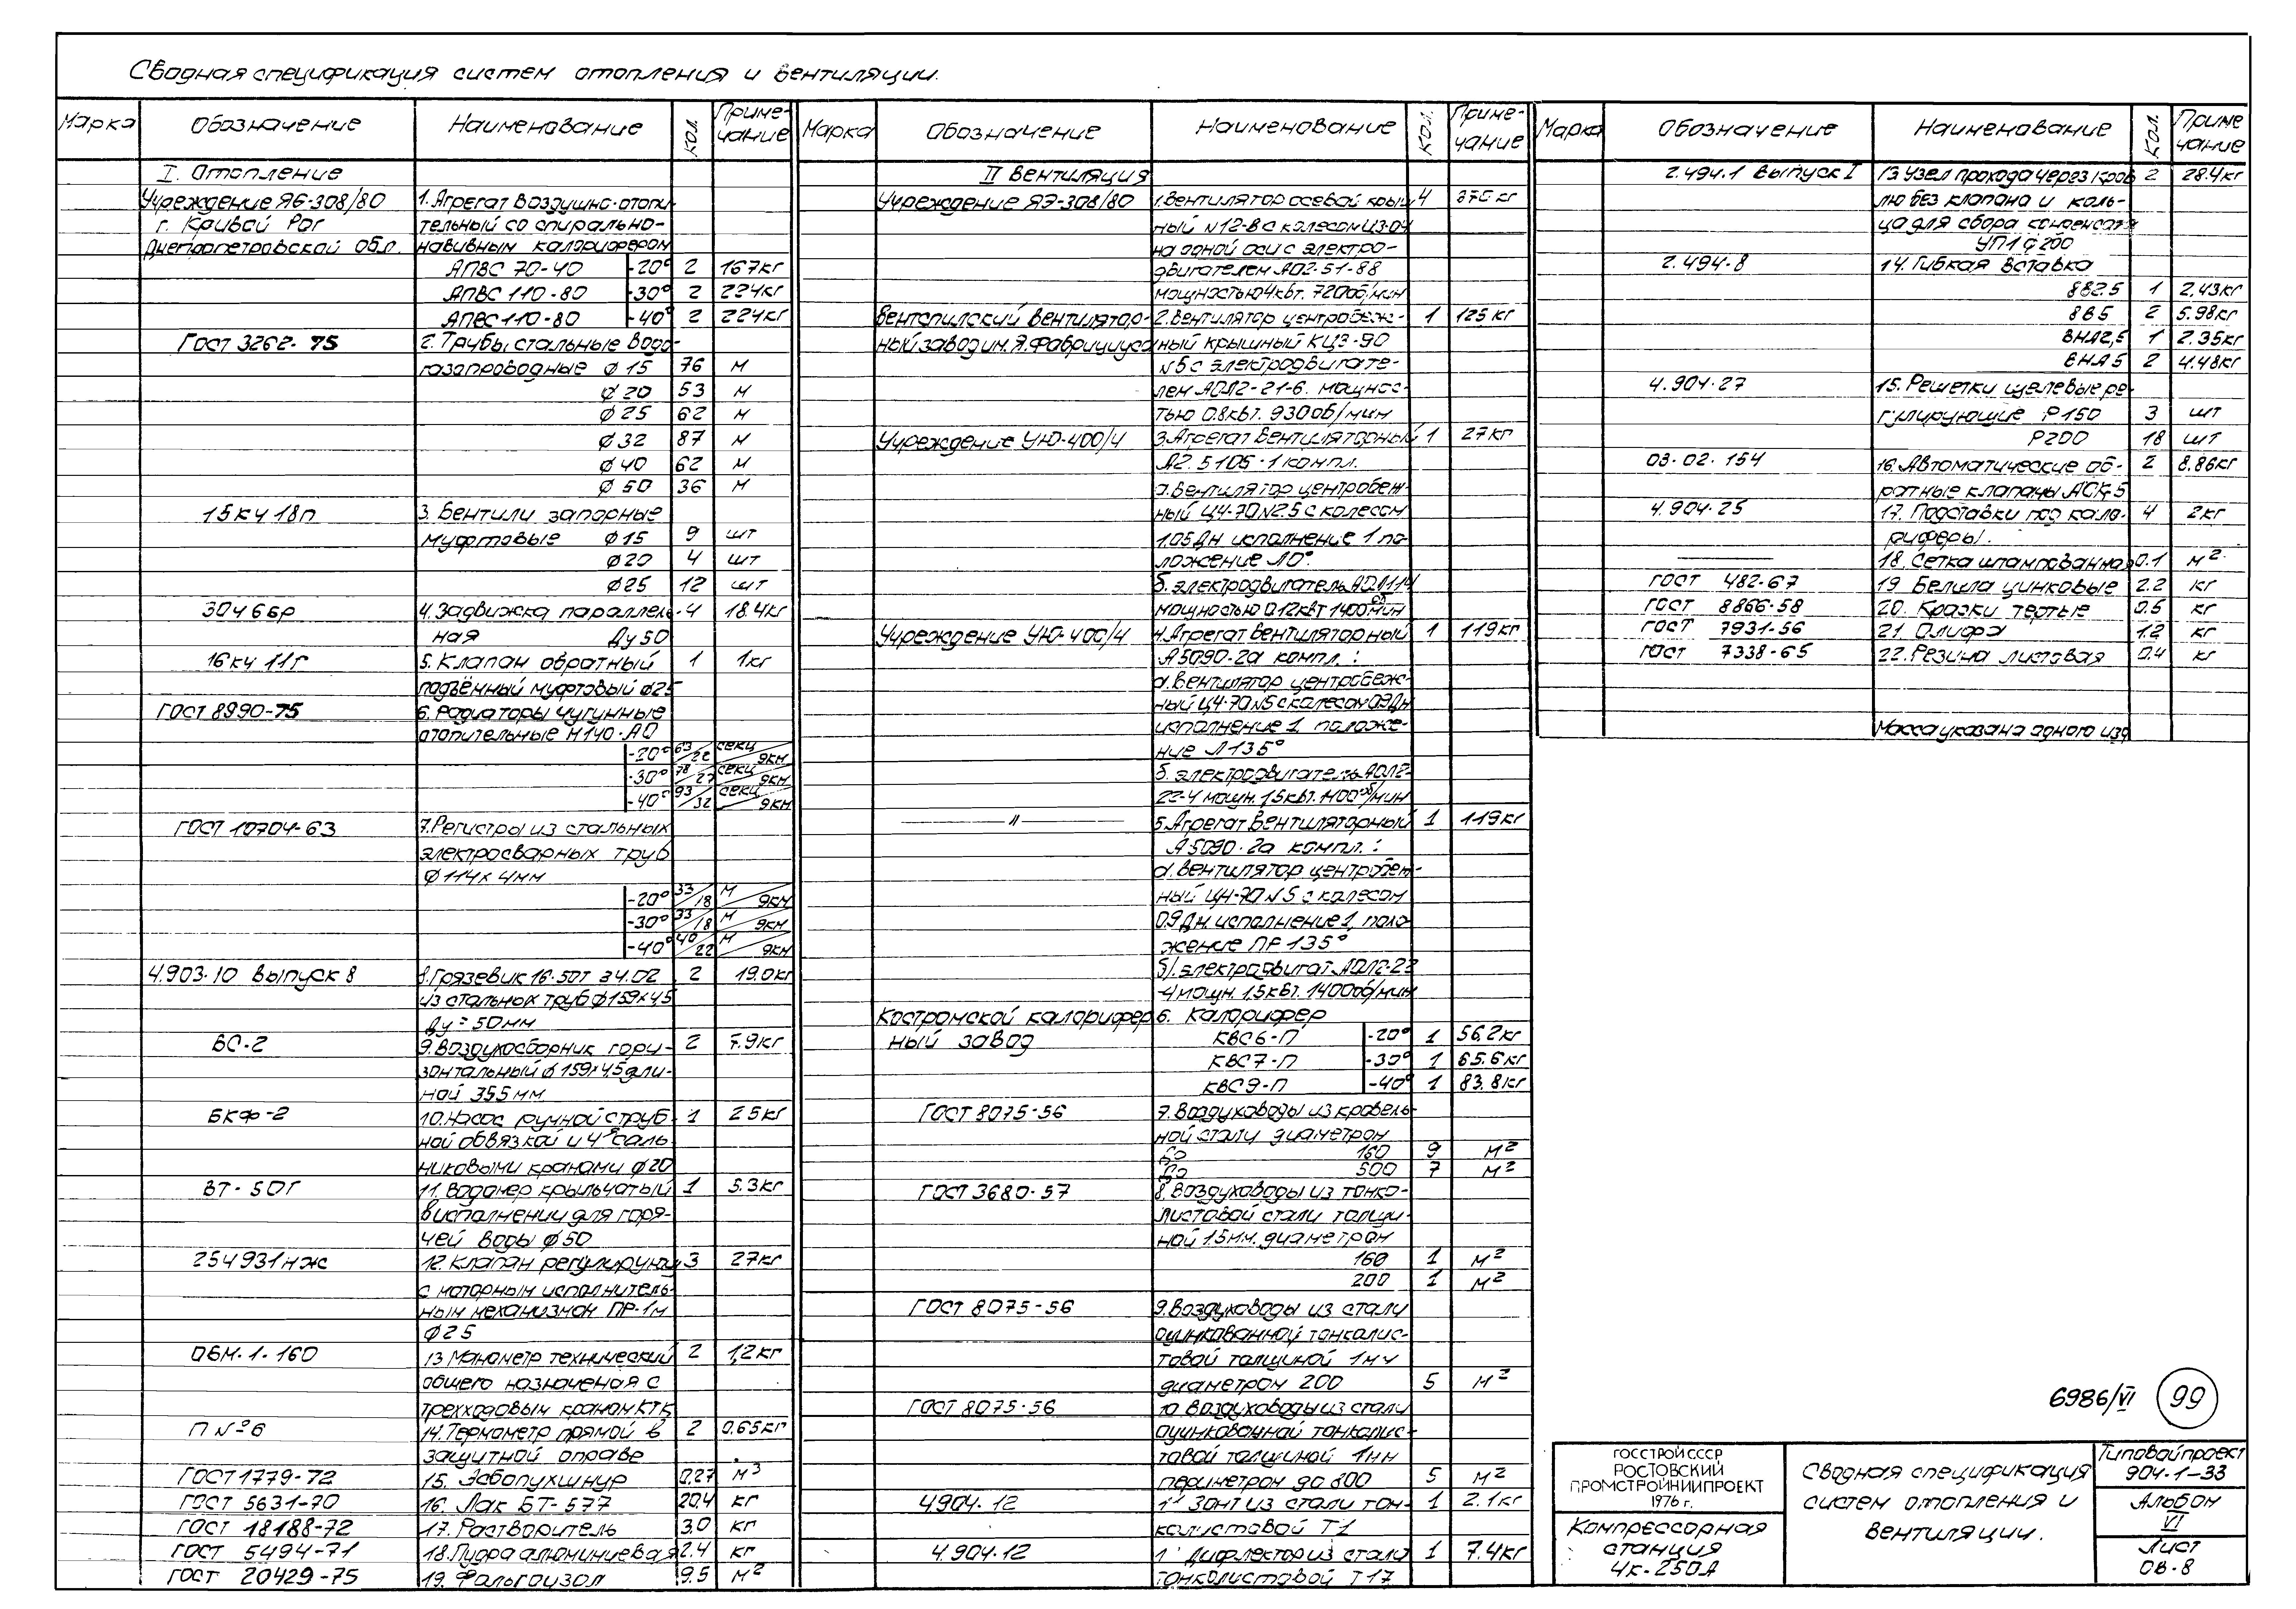 Сводная спецификация систем отопления и вентиляции.
Марка Обозначение Наименование кол. Приме-чание
I. Отопление
Учреждение ЯЭ-308/80 1. Агрегат воздушно-отопи-
г. Кривой Рог тельный со спирально-
Днепропетровской обл. навивным калорифером
АПВС 70-40 -20° 2 167кг
АПВС 110-80 -30° 2 224кг
АПВС 110-80 -40° 2 224кг
ГОСТ 3262-75 2. Трубы стальные водо-
газопроводные ф 15 76 м
ф 20 53 м
ф 25 62 м
ф 32 87 м
ф 40 62 м
ф 50 36 м
15кч 18п 3. Вентили запорные
муфтовые ф 15 9 шт
ф20 4 шт
ф25 12 шт
30ч 6бр 4. Задвижка параллель- 4 18.4кг
ная Ду 50
16кч 11г 5. Клапан обратный 1 1кг
подъёмный муфтовый ф25
ГОСТ 8990-75 6. Радиаторы чугунные
отопительные М140-АО
-20° 63/22 секц/экм
-30° 78/27 секц/экм
-40° 93/32 секц/экм
ГОСТ 10704-63 7. Регистры из стальных
электросварных труб
ф 114х 4мм
-20° 33/18 м/экм
-30° 33/18 м/экм
-40° 40/22 м/экм
4.903-10 выпуск 8 8. Грязевик 16-50т 34.02 2 19.0кг
из стальных труб ф159х4.5
Ду = 50мм
ВС-2 9. Воздухосборник гори- 2 7.9кг
зонтальный ф 159х4,5 дли-
ной 355мм.
БКФ-2 10. Насос ручной с труб- 1 25кг
ной обвязкой и 4ю саль-
никовыми кранами ф20
ВТ-50Г 11. Водомер крыльчатый 1 5.3кг
в исполнении для горя-
чей воды ф50
25ч931нж 12. Клапан регулирующ. 3 27кг
с моторным исполнитель-
ным механизмом ПР-1м
ф25
ОБМ-1-160 13 Манометр технический 2 1,2кг
общего назначения с
трехходовым краном КТК
П №6 14. Термометр прямой в 2 0.65кг
защитной оправе
ГОСТ 1779-72 15. Асбопухшнур 0.27 м³
ГОСТ 5631-70 16. Лак БТ-577 20.4 кг
ГОСТ 18188-72 17. Растворитель 3.0 кг
ГОСТ 5494-71 18. Пудра алюминиевая 2.4 кг
ГОСТ 20429-75 19. Фальгоизол 9.5 м²
Марка Обозначение Наименование кол. Приме-чание
II Вентиляция
Учреждение ЯЭ-308/80 1. Вентилятор осевой крыш- 4 376 кг
ный №12-8 с колесом ЦЗ-04
на одной оси с электро-
двигателем АО2-51-88
мощностью 4квт. 720об/мин
Вентспилский вентилятор- 2. Вентилятор центробеж- 1 125 кг
ный завод им. Я. Фабрициуса ный крышный КЦЗ-90
№5 с электродвигате-
лем АОЛ2-21-6. мощнос-
тью 0.8квт. 930об/мин
Учреждение УЮ-400/4 3. Агрегат вентиляторный 1 27кг
А2.5105-1 компл.
а. вентилятор центробеж-
ный Ц4-70 №2.5 с колесом
1.05Дн исполнение 1 по-
ложение Л0°
б. электродвигатель АОЛ114
мощностью 0.12квт 1400об/мин
Учреждение УЮ-400/4 4. Агрегат вентиляторный 1 119кг
А5090-2а компл.:
а. вентилятор центробеж-
ный Ц4-70 №5 с колесом 0.9Дн
исполнение 1, положе-
ние Л135°
б. электродвигатель АОЛ2-
22-4 мощн. 1,5квт. 1400об/мин
— " — 5. Агрегат вентиляторный 1 119кг
А5090-2а компл.:
а. вентилятор центробеж-
ный Ц4-70 №5 с колесом
0.9Дн. исполнение 1, поло-
жение ПР 135°
б). электродвигат. АОЛ2-22
-4 мощн. 1,5квт. 1400об/мин
Костромской калорифер- 6. Калорифер
ный завод КВС6-П -20° 1 56.2кг
КВС7-П -30° 1 65.6кг
КВС9-П -40° 1 83.8кг
ГОСТ 8075-56 7. Воздуховоды из кровель-
ной стали диаметром
до 160 9 м²
до 500 7 м²
ГОСТ 3680-57 8. Воздуховоды из тонко-
листовой стали толщи-
ной 1.5мм. диаметром
160 1 м²
200 1 м²
ГОСТ 8075-56 9. Воздуховоды из стали
оцинкованной тонколис-
товой толщиной 1мм
диаметром 200 5 м²
ГОСТ 8075-56 10 Воздуховоды из стали
оцинкованной тонколис-
товой толщиной 1мм
периметром до 800 5 м²
4.904-12 11 Зонт из стали тон- 1 2.1кг
колистовой Т1
4.904-12 Дифлектор из стали 1 7.4кг
тонколистовой Т17
Марка Обозначение Наименование кол. Приме чание
2.494.1 выпуск I 13 Узел прохода через кров- 2 28.4кг
лю без клапана и коль-
ца для сбора конденсата
УП1 ф200
2.494-8 14. Гибкая вставка
ВВ2.5 1 2.43кг
ВВ5 2 5.98кг
ВНА2,5 1 2.35кг
ВНА5 2 4.48кг
4.904-27 15. Решетки щелевые ре-
гулирующие Р150 3 шт
Р200 18 шт
03.02.154 16. Автоматические об- 2 8.86кг
ратные клапаны АСК-5
4.904-25 17. Подставки под кало- 4 2кг
риферы.
— 18. Сетка штампованная 0.1 м²
ГОСТ 482-67 19 Белила цинковые 2.2 кг
ГОСТ 8866-58 20. Краски тертые 0.5 кг
ГОСТ 7931-56 21. Олифа 1.2 кг
ГОСТ 7338-65 22. Резина листовая 0.4 кг
Масса указана одного изд
6986/VI 99
ГОССТРОЙ СССР
РОСТОВСКИЙ
ПРОМСТРОЙНИИПРОЕКТ
1976 г.
Компрессорная
станция
4К-250А
Сводная спецификация
систем отопления и
вентиляции.
Типовой проект
904-1-33
Альбом
VI
Лист
ОВ-8